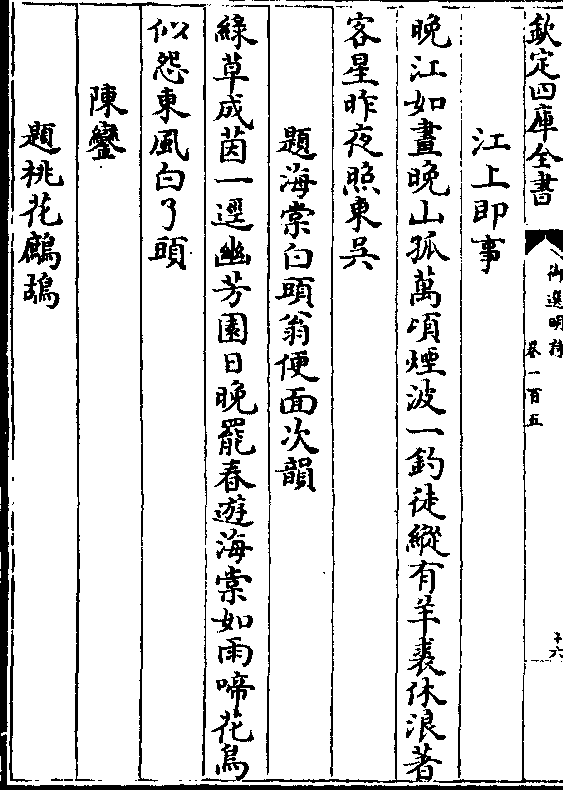 欽定四庫全書
御選明詩
卷一百五
十六
江上即事
晚江如畫晚山孤萬頃煙波一釣徒縱有羊裘休浪著
客星昨夜照東吳
題海棠白頭翁便面次韻
綠草成茵一逕幽芳園日晚罷春遊海棠如雨啼花鳥
似怨東風白了頭
陳鑾
題桃花鷓鴣